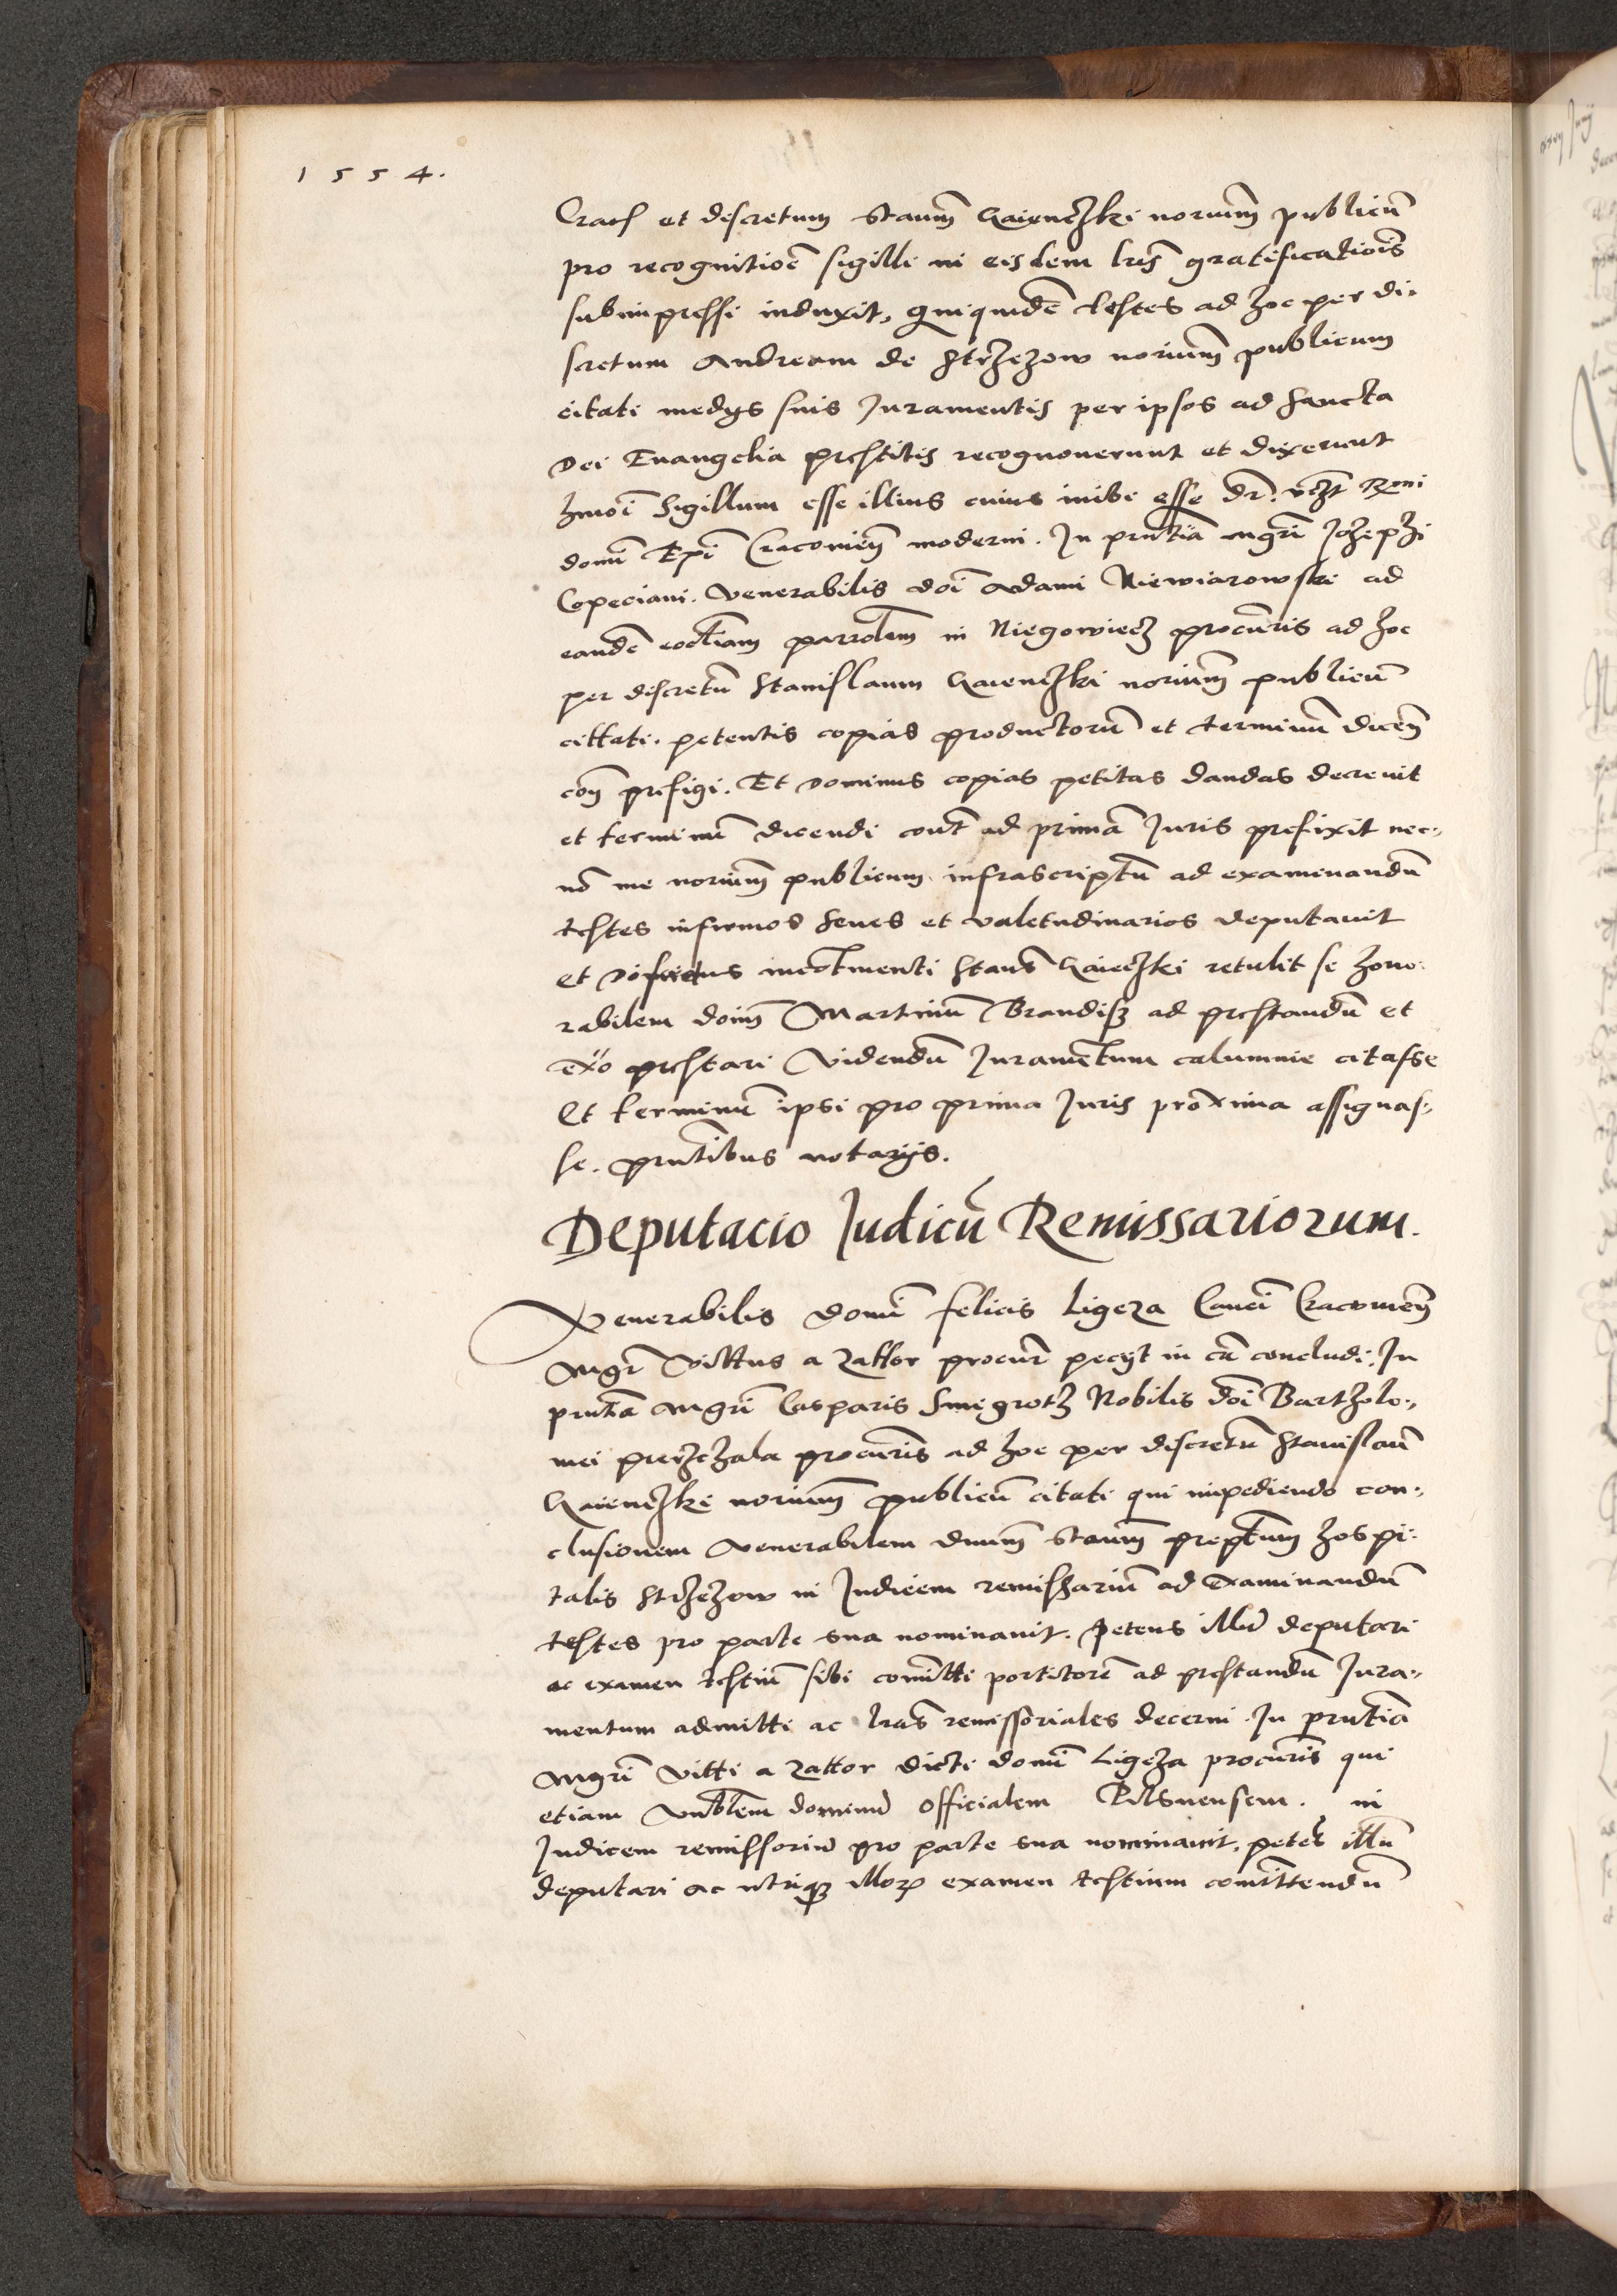 1554.
Crac et discretum Stanm̄ Gaienczki noriūm publicū
pro recognitioē sigilli in eisdem lris̄ gratificatiois̄
subimpressi induxit, quiquidē testes ad hoc per di-
scretum Andream de Strzezow noriūm publicum
citati medys suis Juramentis per ipsos ad Sancta
Dei Euangelia prestitis recognouerunt et dixerunt
hmōi Sigillum esse illius cuius inibi esse dr̄. vczt Rmi
domī Epī Cracouieñ moderni. In pn̄tia mgrī Jozephi
Copeciani. Venerabilis doī Adami Niewiarowski ad
eandē eccliam parrolem in Niegowiecz procuris̄ ad hoc
per discretū Stanislaum Gaienczki noriūm publicū
cittati. petentis copias productorū et terminū diceñ
coñ prefigi. Et Dominus copias petitas dandas decreuit
et terminū dicendi cont̄ ad primā Juris prefixit nec-
nō me noriūm publicum infrascriptū ad examenandū
testes infirmos senes et valetudinarios deputauit
et stans̄ Gaieczki retulit se hono-
rabilem doim̄ Martinū Brandisz ad prestandū et
exo prestari Videndū Juramentum calumnie citasse
Et terminū ipsi pro prima Juris proxima assignas-
se. pn̄tibus notarijs.
Deputacio Judicū Remissariorum.
Venerabilis domī felicis Ligeza Canci Cracouieñ
Mgr̄ Vittus a Zattor procur̄ pecyt in cā concludi. In
pn̄tia Mgrī Casparis Smigrotz Nobilis doī Bartholo-
mei przechala procuris̄ ad hoc per discretū Stanislaū
Gaienczki noriūm publicū citati qui impediendo con-
clusionem Venerabilem dnum̄ Stanm̄ preptum hospi-
talis Strzezow in Judicem remissariū ad Examinandū
testes pro parte sua nominauit. Petens illū deputari
ac examen testiū sibi comitti portitorē ad prestandū Jura-
mentum admitti ac lras̄ remissoriales decerni. In pn̄tiā
Mgrī Vitti a Zattor dicti domī Ligeza procuris̄ qui
etiam Vnblem dominū officialem Pilsnensem. in
Judicem remissoriū pro parte sua nominauit, petēs illū
deputari ac utriqȝ illoꝝ examen testium comittendū